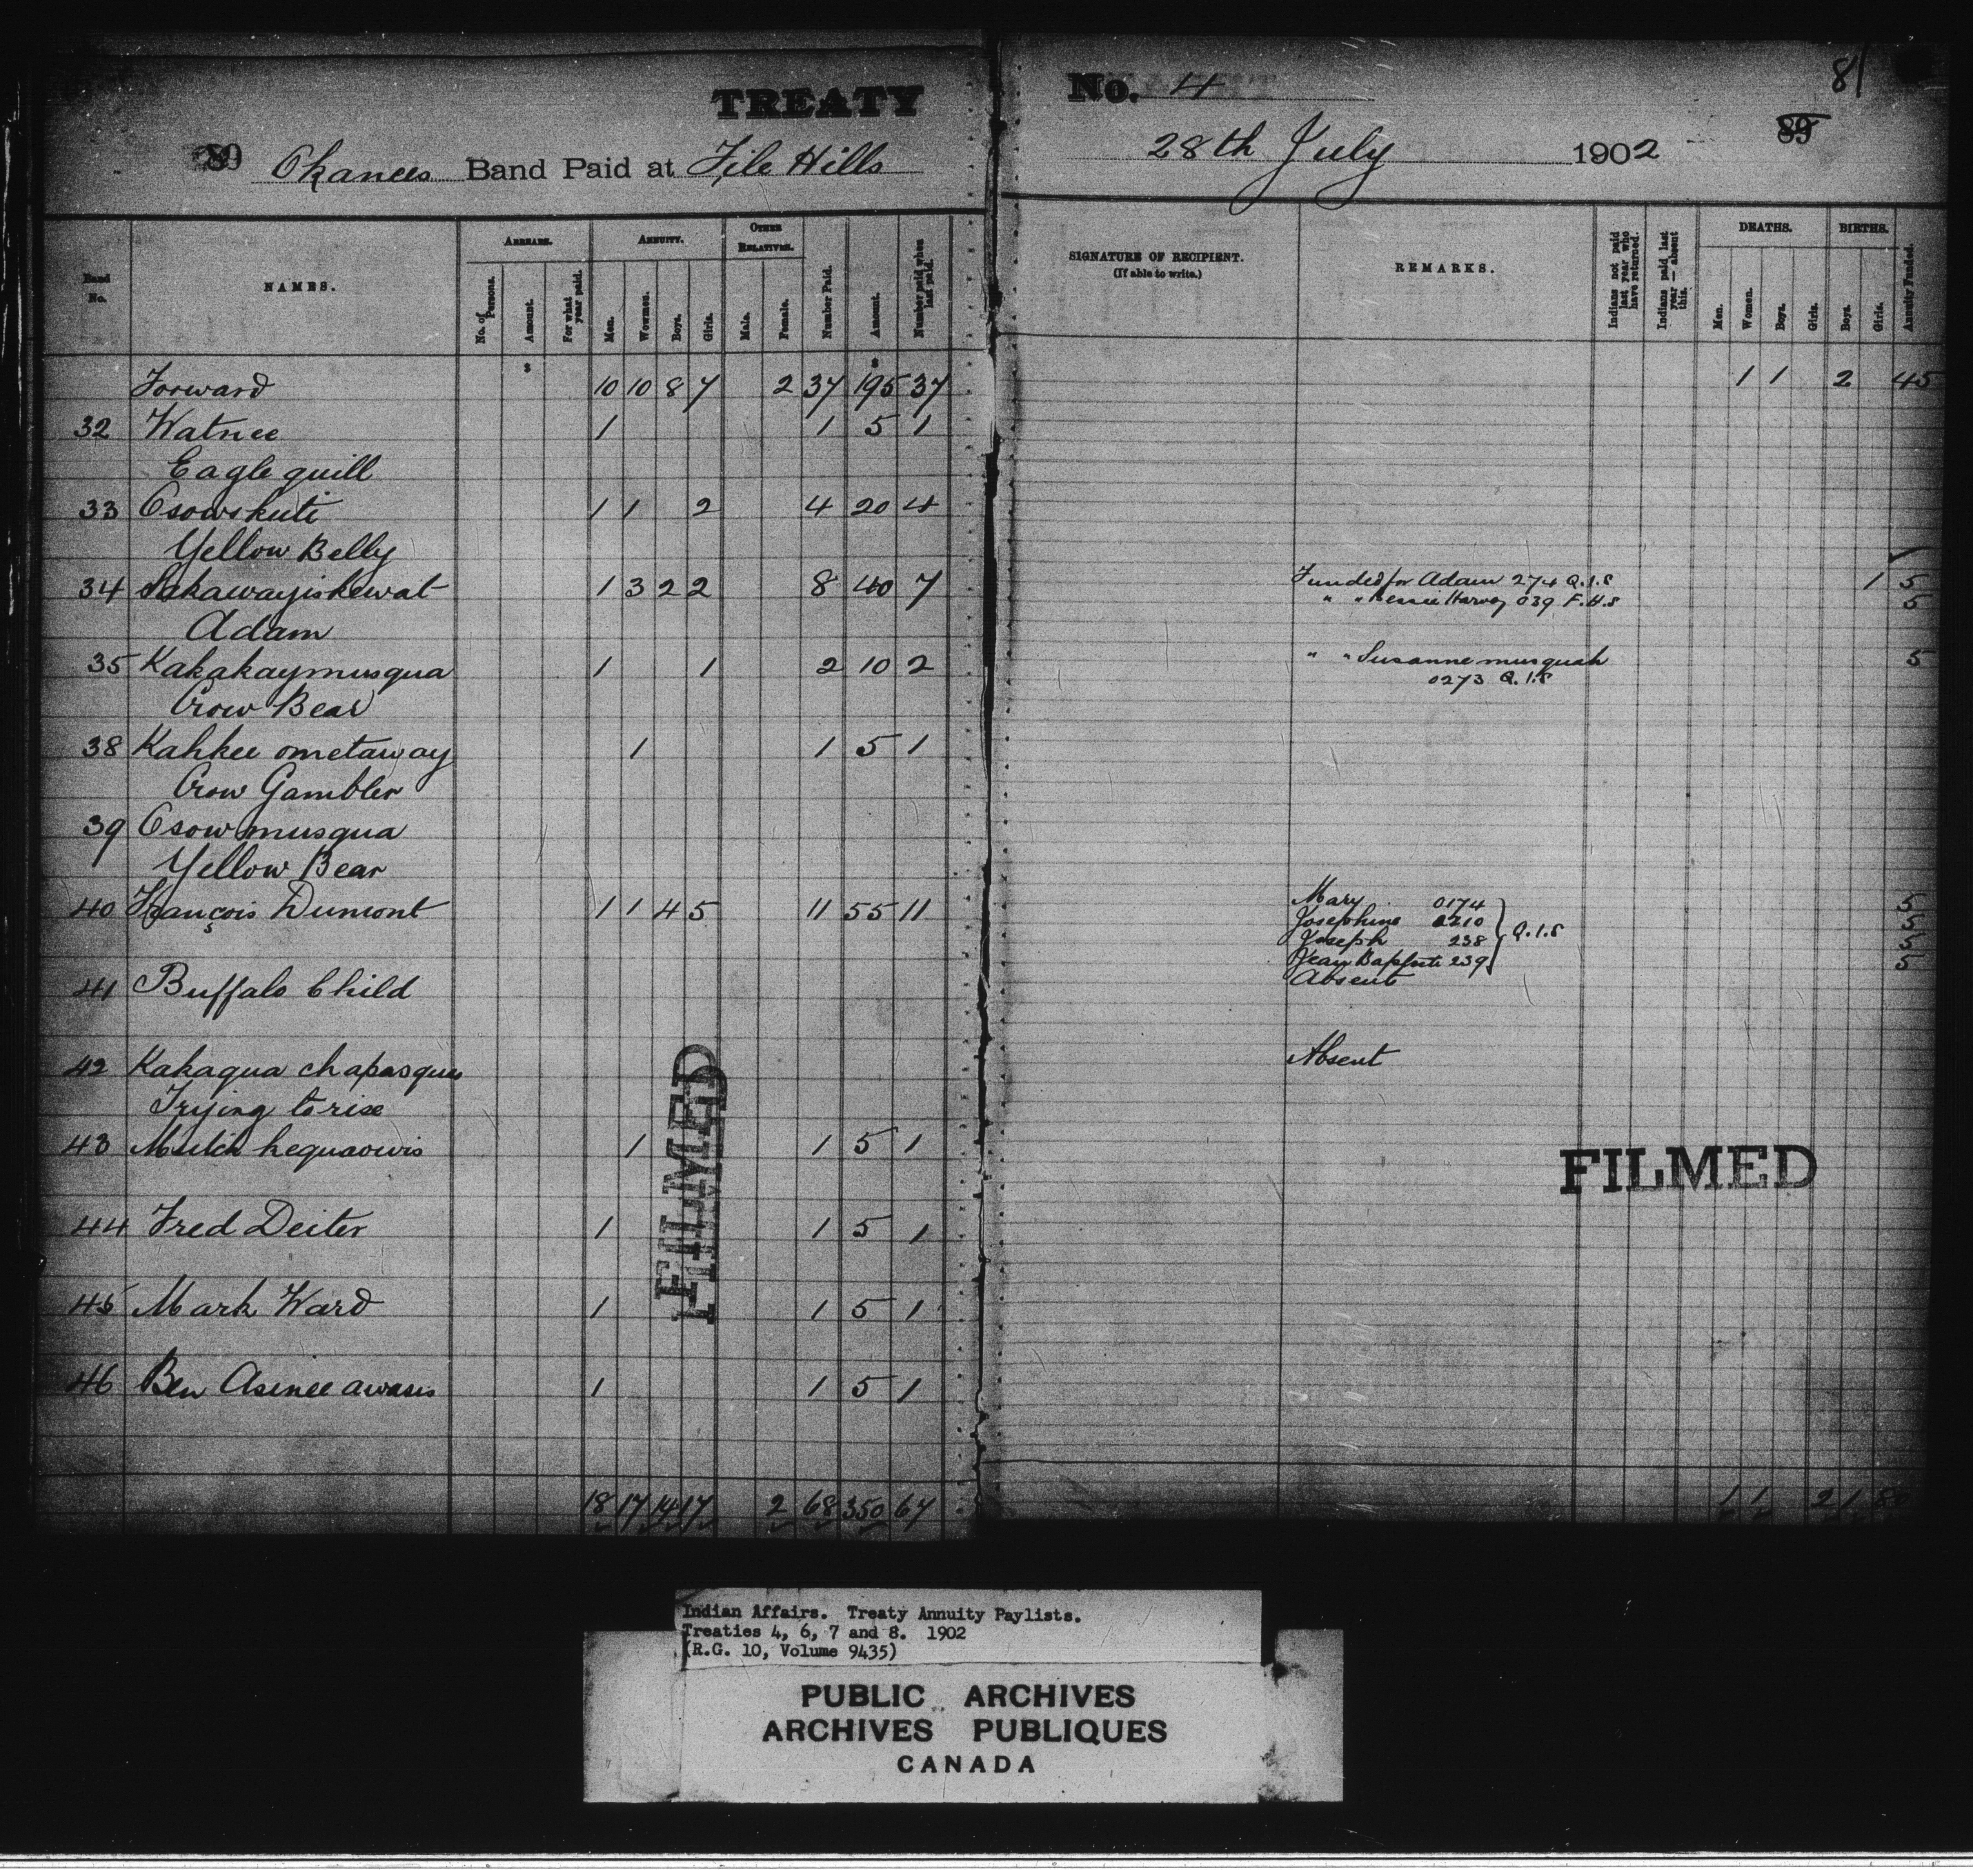 TREATY No. 4
81
89 Okanees Band Paid at File Hills 28th July 1902 89
Band No. NAMES. ARREARS. No. of Persons. Amount. For what year paid. ANNUITY. Men. Women. Boys. Girls. OTHER RELATIVES. Male. Female. Number Paid. Amount. Number paid when last paid. SIGNATURE OF RECIPIENT. (If able to write.) REMARKS. Indians not paid last year who have returned. Indians paid last year — absent this. DEATHS. Men. Women. Boys. Girls. BIRTHS. Boys. Girls. Annuity Funded.
$ $
Forward 10 10 8 7 2 37 195 37 1 1 2 45
32 Watnee 1 1 5 1
Eagle quill
33 Osowskuti 1 1 2 4 20 4
Yellow Belly
34 Sakawayiskewat 1 3 2 2 8 40 7 Funded for Adam 274 Q.I.S 1 5
" " Bessie Harvey 039 F.H.S 5
Adam
35 Kakakaymusqua 1 1 2 10 2 " " Susanne musquah 5
0273 Q.I.S
Crow Bear
38 Kahkee ometaway 1 1 5 1
Crow Gambler
39 Osowmusqua
Yellow Bear
40 François Dumont 1 1 4 5 11 55 11 Mary 0174 5
Josephine 0210 Q.I.S 5
Joseph 238 5
Jean Baptiste 239 5
41 Buffalo Child Absent
42 Kakaqua chapasques Absent
Trying to rise
43 kequaowis 1 1 5 1
44 Fred Deiter 1 1 5 1
45 Mark Ward 1 1 5 1
46 Ben Asinee awasis 1 1 5 1
18 17 14 17 2 68 350 67 1 1 2 1 80
FILMED
FILMED
Indian Affairs. Treaty Annuity Paylists.
Treaties 4, 6, 7 and 8. 1902
(R.G. 10, Volume 9435)
PUBLIC ARCHIVES
ARCHIVES PUBLIQUES
CANADA